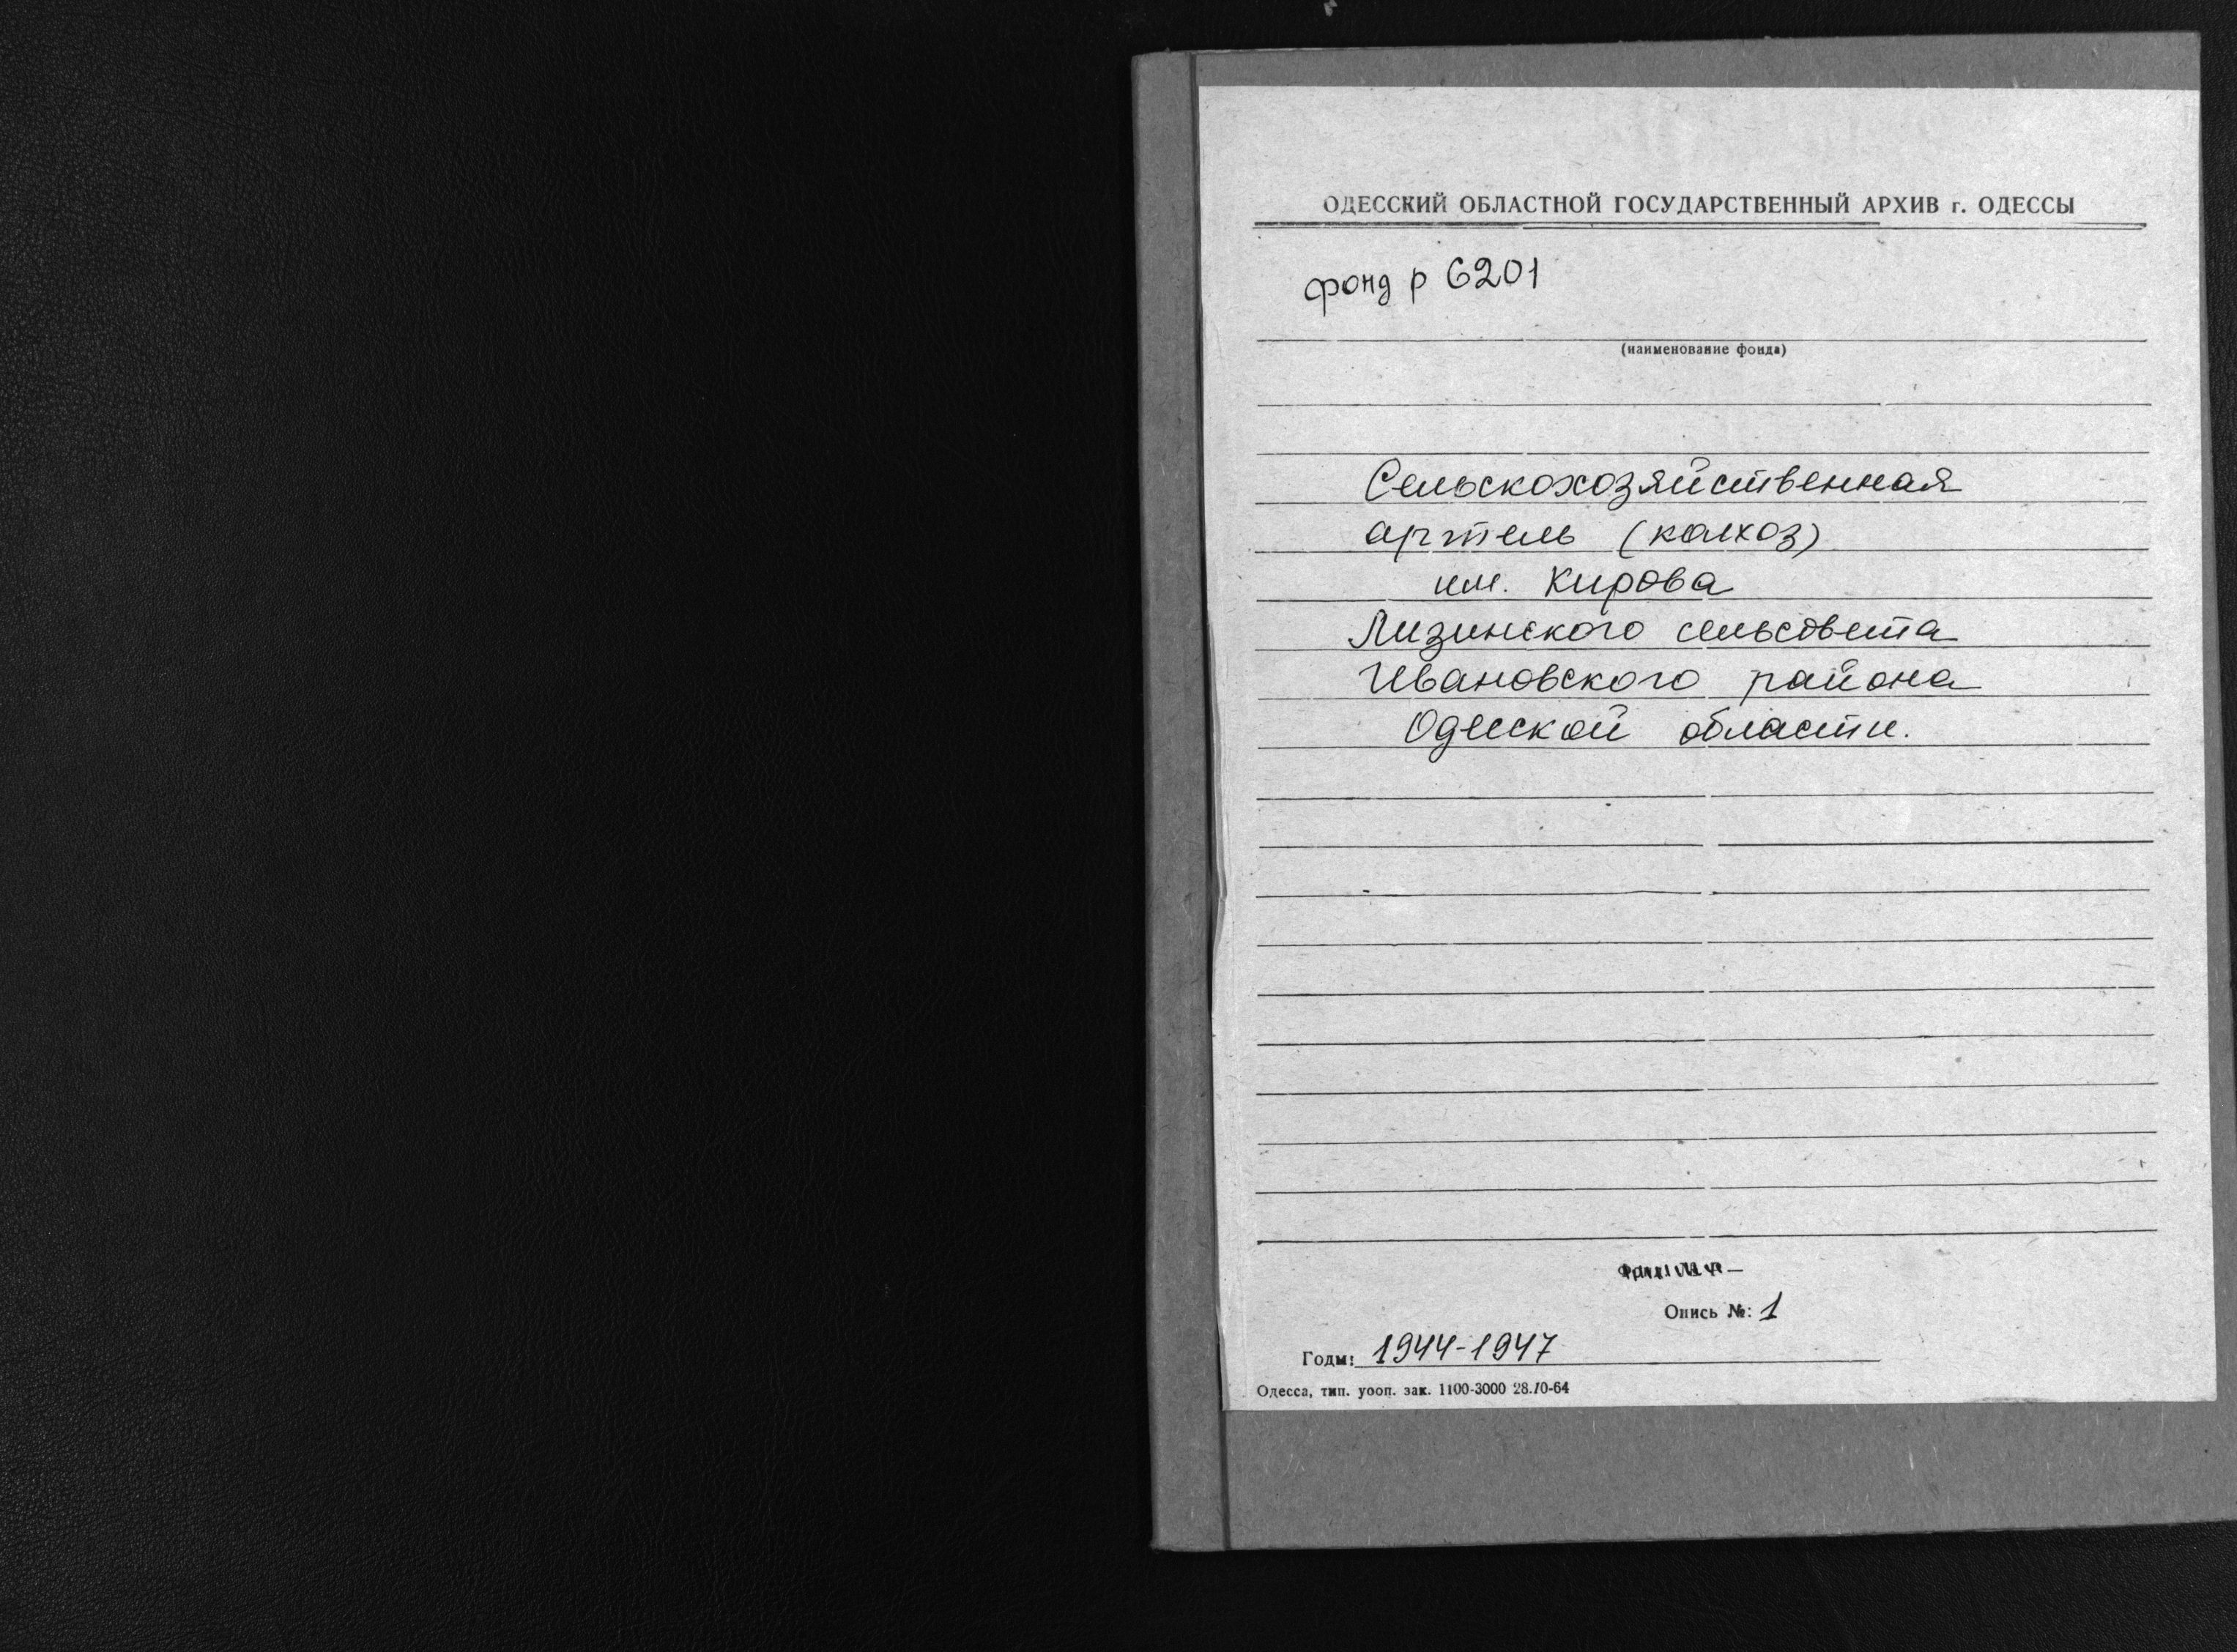 ОДЕССКИЙ ОБЛАСТНОЙ ГОСУДАРСТВЕННЫЙ АРХИВ г. ОДЕССЫ
фонд р 6201
(наименование фонда)
Сельскохозяйственная
артель (колхоз)
им. Кирова
Лизинского сельсовета
Ивановского района
Одесской области.
Опись №: 1
Годы: 1944-1947
Одесса, тип. уооп. зак. 1100-3000 28.10-64